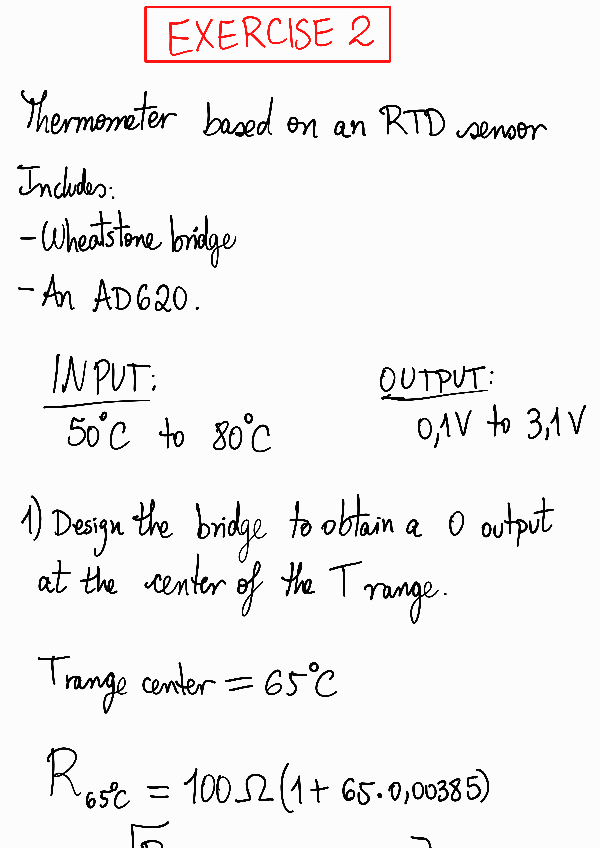 EXERCISE 2
Thermometer based on an RTD sensor
Includes:
- Wheatstone bridge
- An AD620.
INPUT: OUTPUT:
50°C to 80°C 0,1V to 3,1V
1) Design the bridge to obtain a 0 output
at the center of the T range.
T range center = 65°C
R65°C = 100Ω(1+ 65·0,00385)